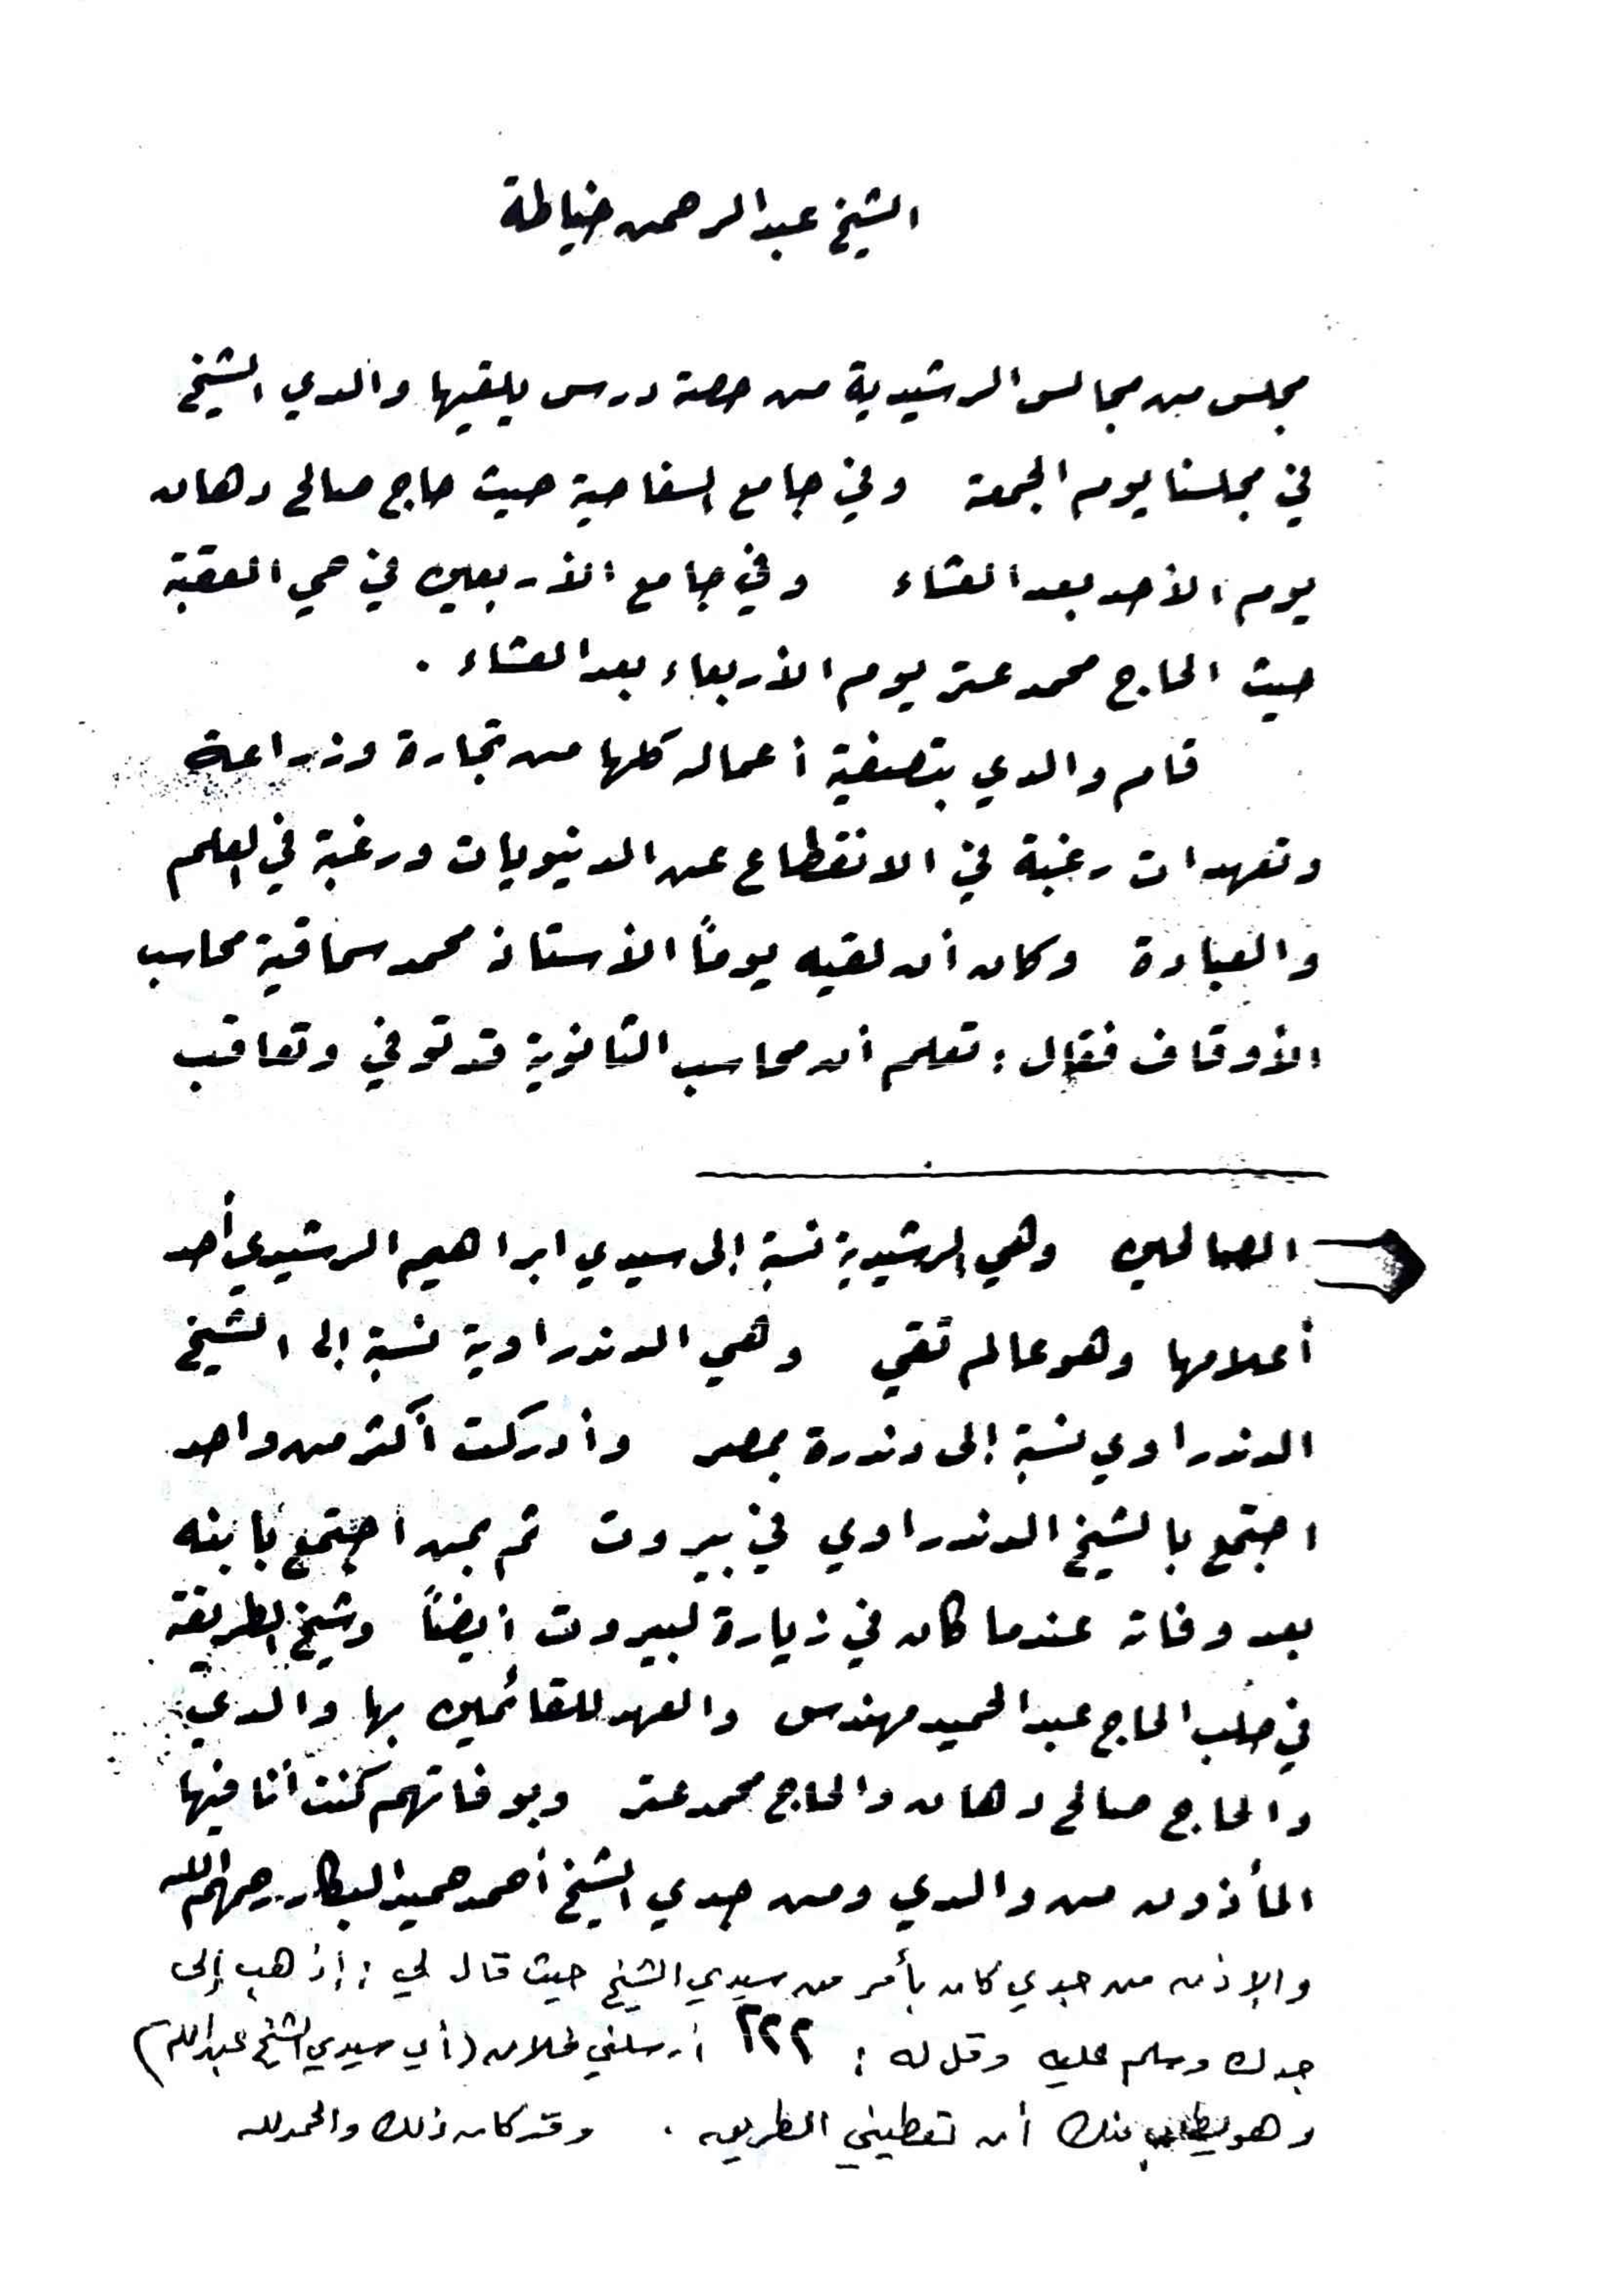 الشيخ عبد الرحمن خياطة
مجلس من مجالس الرشيدية من حصة درس يلقيها والدي الشيخ
في مجلسنا يوم الجمعة وفي جامع السفاحية حيث حاج صالح دهان
يوم الأحد بعد العشاء وفي جامع الأربعين في حي العقبة
حيث الحاج محمد عتر يوم الأربعاء بعد العشاء .
قام والدي بتصفية أعماله كلها من تجارة وزراعة
وتعهدات رغبة في الانقطاع عن الدنيويات ورغبة في العلم
والعبادة وكان أن لقيه يوماً الأستاذ محمد سماقية محاسب
الأوقاف فقال : تعلم أن محاسب الثانوية قد توفي وتعاقب
الصالحين وهي الرشيدية نسبة إلى سيدي ابراهيم الرشيدي أحد
أعلامها وهو عالم تقي وهي الدندراوية نسبة إلى الشيخ
الدندراوي نسبة إلى دندرة بمصر وأدركت أكثر من واحد
اجتمع بالشيخ الدندراوي في بيروت ثم بمن اجتمع بابنه
بعد وفاته عندما كان في زيارة لبيروت أيضاً وشيخ الطريقة
في حلب الحاج عبد الحميد مهندس والعهد للقائمين بها والدي
والحاج صالح دهان والحاج محمد عتر وبوفاتهم كنت أنا فيها
المأذون من والدي ومن جدي الشيخ أحمد حميد البكار رحمهم الله
والإذن من جدي كان بأمر من سيدي الشيخ حيث قال لي : إذهب إلى
جدك وسلم عليه وقل له : ٢٢٢ أرسلني فلان (أي سيدي الشيخ عبد الله)
وهو يطلب منك أن تعطيني الطريق . وقد كان ذلك والحمد لله